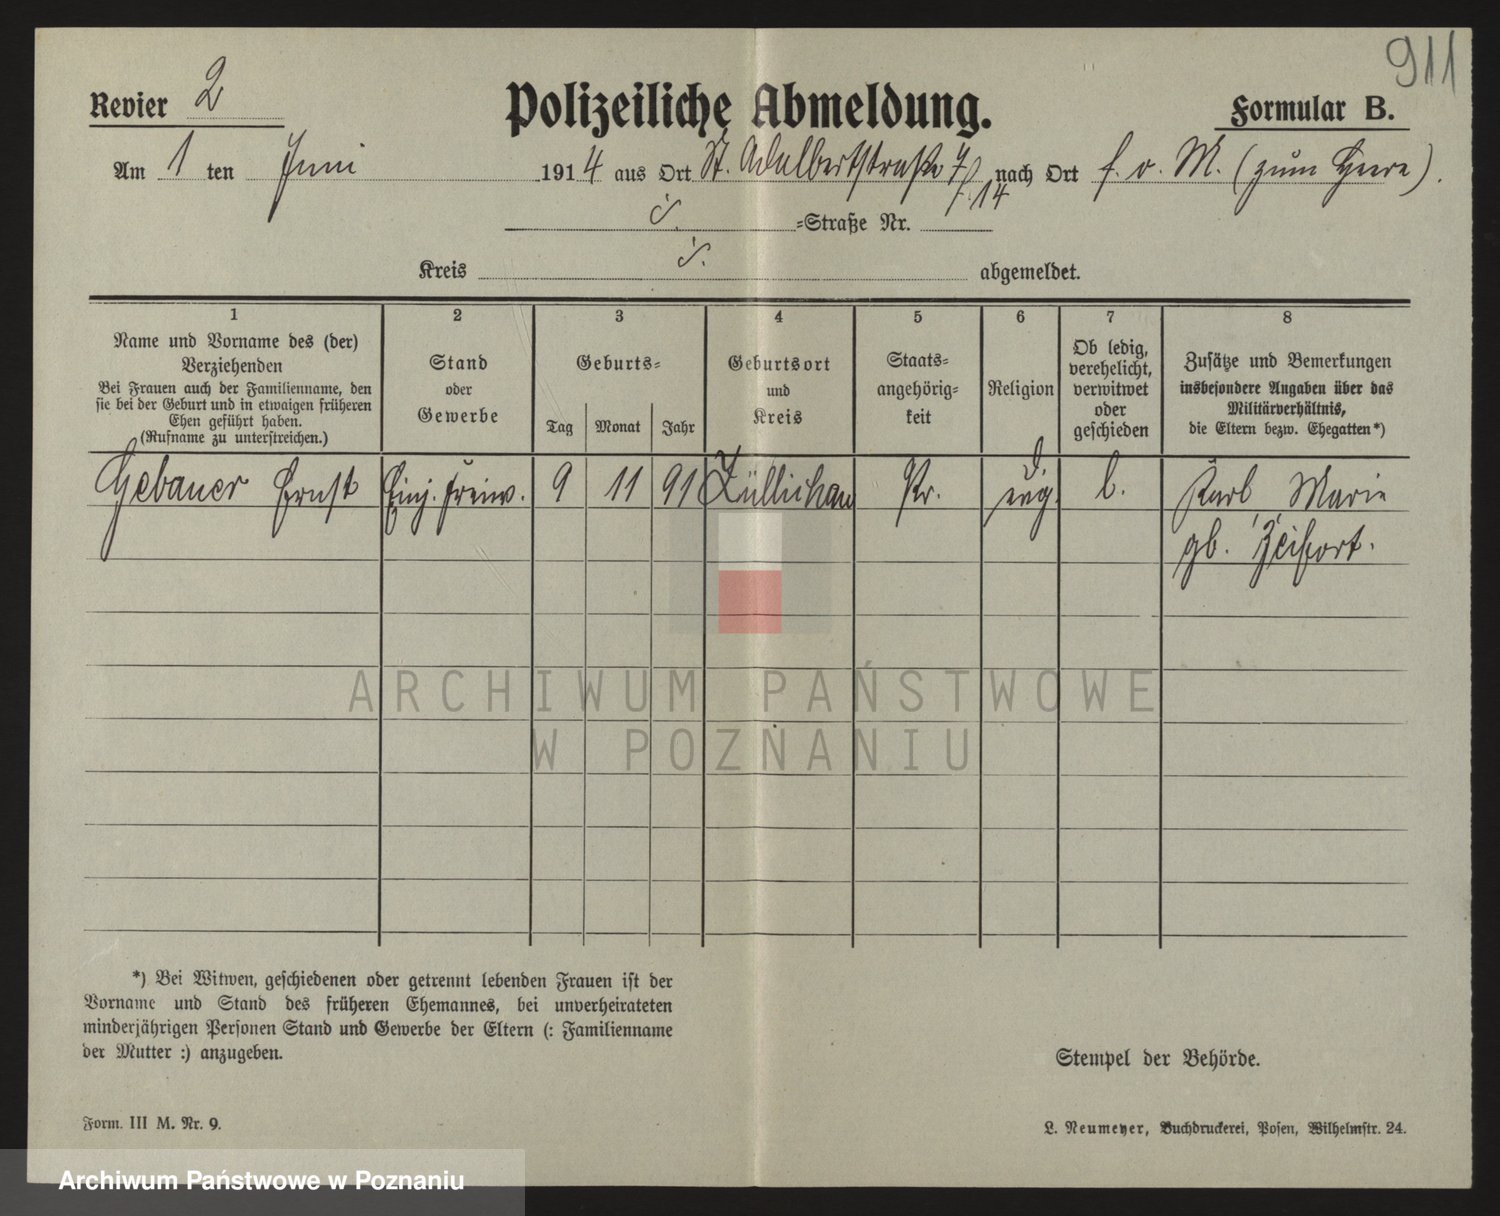 911
Revier 2
Polizeiliche Abmeldung.
Formular B.
Am 1 ten Juni 1914 aus Ort St. Adalbertstraße nach Ort f. v. M. (zum Heere).
14
-Straße Nr.
Kreis abgemeldet.
1 2 3 4 5 6 7 8
Name und Vorname des (der)
Verziehenden
Bei Frauen auch der Familienname, den
sie bei der Geburt und in etwaigen früheren
Ehen geführt haben.
(Rufname zu unterstreichen.)
Stand
oder
Gewerbe
Geburts-
Tag Monat Jahr
Geburtsort
und
Kreis
Staats-
angehörig-
keit
Religion
Ob ledig,
verehelicht,
verwitwet
oder
geschieden
Zusätze und Bemerkungen
insbesondere Angaben über das
Militärverhältnis,
die Eltern bezw. Ehegatten*)
Gebauer Ernst Einj. Freiw. 9 11 91 Züllichau Pr. evg. l. Karl, Marie
gb.
ARCHIWUM PAŃSTWOWE
W POZNANIU
*) Bei Witwen, geschiedenen oder getrennt lebenden Frauen ist der
Vorname und Stand des früheren Ehemannes, bei unverheirateten
minderjährigen Personen Stand und Gewerbe der Eltern (: Familienname
der Mutter :) anzugeben.
Stempel der Behörde.
Form. III M. Nr. 9.
L. Neumeyer, Buchdruckerei, Posen, Wilhelmstr. 24.
Archiwum Państwowe w Poznaniu